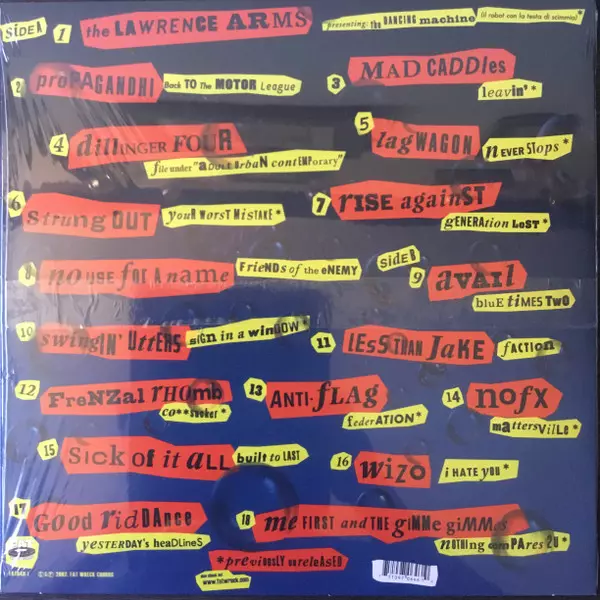 SIDE A
1 the LAWRENCE ARMS presenting: the DANCING machine (il robot con la testa di scimmia)
2 PROPAGANDHI Back TO The MOTOR League
3 MAD CADDIES leavin'*
4 dillINGER FOUR file under "ADULT URBAN CONTEMPORARY"
5 lagWAGON NEVER STOPS*
6 Strung OUT YOUR WORST MISTAKE*
7 RISE against GENERATION LOST*
8 no use for a name FRIENDS of the ENEMY
SIDE B
9 avail blue TIMES TWO
10 swingin' utters sign in a window*
11 LESS THAN JAKE FACTION
12 FRENZAL RHOMB co**sucker*
13 ANTI-FLAG federATION*
14 NOFX mattersville*
15 SICK of it ALL built to LAST
16 WIZO i HATE you*
17 GOOD RIDDANCE YESTERDAY'S HEADLINES
18 me FIRST and THE gimme gimmes NOTHING COMPARES 2U*
*PREVIOUSLY UNRELEASED
2002 FAT WRECK CHORDS
www.fatwreck.com